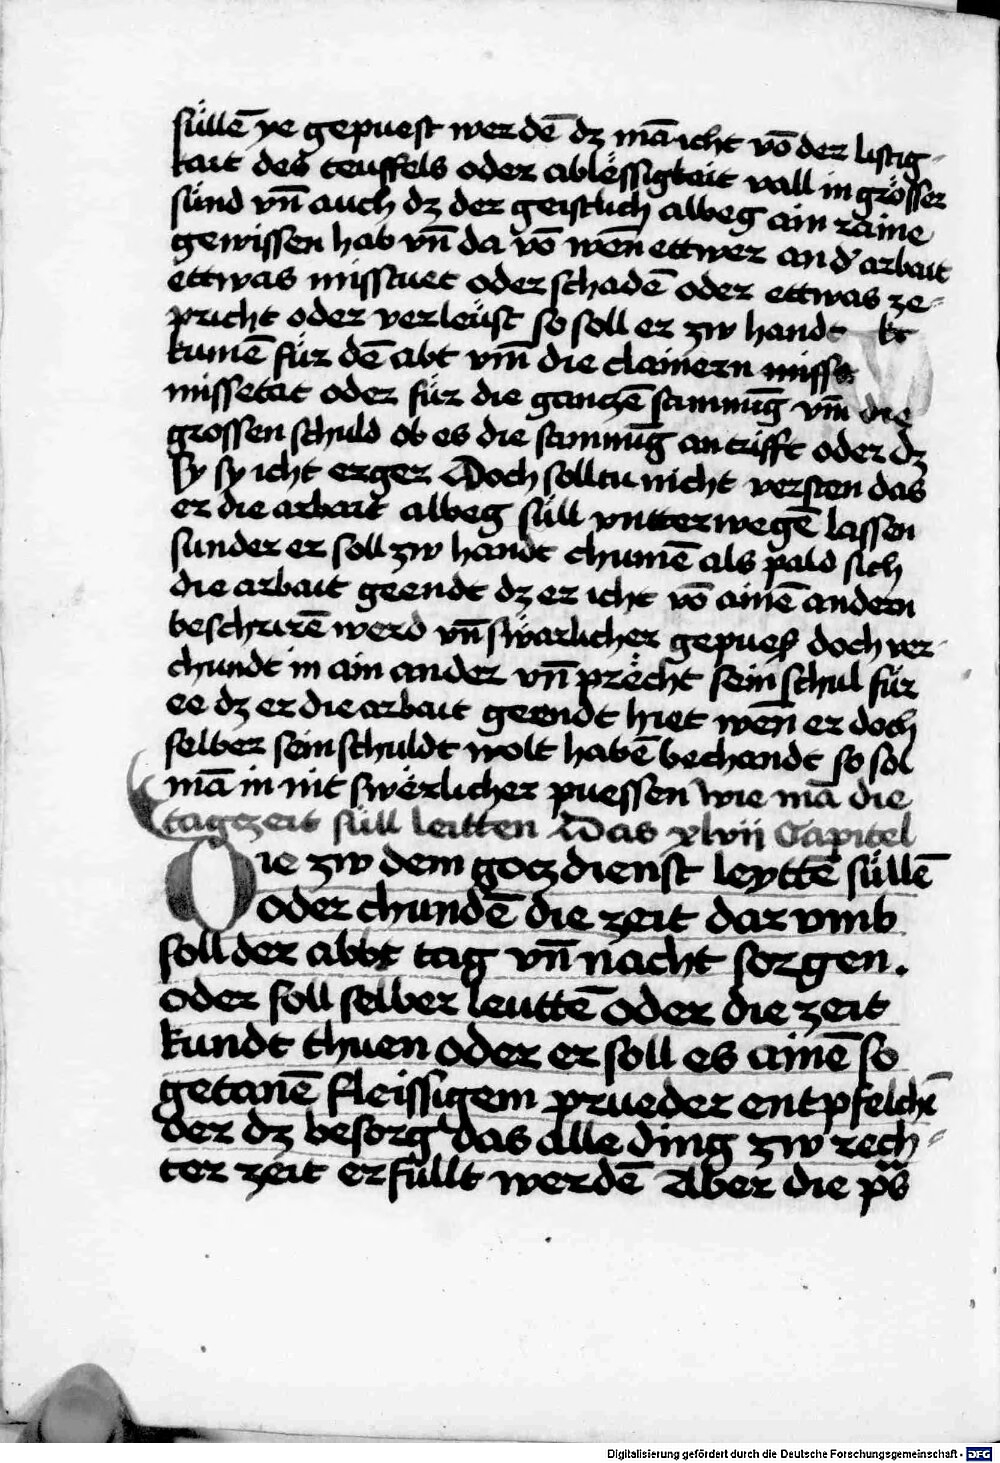 süllē ye gepuest werdē dz mā icht vō der listig-
kait des teuffels oder ablessigkait vall in grösser
sünd vn̄ auch dz der geistlich albeg ain raine
gewissen hab vn̄ da vō wen̄ ettwer an d' arbait
ettwas misstuet oder schadē oder ettwas ze-
pricht oder verleüst so soll er zw handt
kumē für dē abt vm̄ die clainern
missetat oder für die ganczē samnūg vm̄ die
grossen schuld ob es die samnūg antrifft oder dz
sy sy icht erger Doch solltu nicht versten das
er die arbait albeg süll vntterwegē lassen
sunder er soll zw handt chumē als pald sich
die arbait geendt dz er icht vō ainē andern
beschrirē werd vn̄ swärlicher gepuest doch ver-
chundt in ain ander vn̄ precht sein schul für
ee dz er die arbait geendt hiet wen̄ er doch
selber sein schuldt wolt habē bechandt so sol
mā in nit swërlicher puessen wie mā die
tagzeit süll leitten Das xlvii Capitel
Die zw dem goczdienst leyttē süllē
oder chundē die zeit dar vmb
soll der abbt tag vn̄ nacht sorgen.
oder soll selber leuttē oder die zeit
kundt thuen oder er soll es ainē so
getanē fleissigem prueder entpfelchē
der dz besorg das alle ding zw rech-
ter zeit erfüllt werdē Aber die ps̈
Digitalisierung gefördert durch die Deutsche Forschungsgemeinschaft - DFG